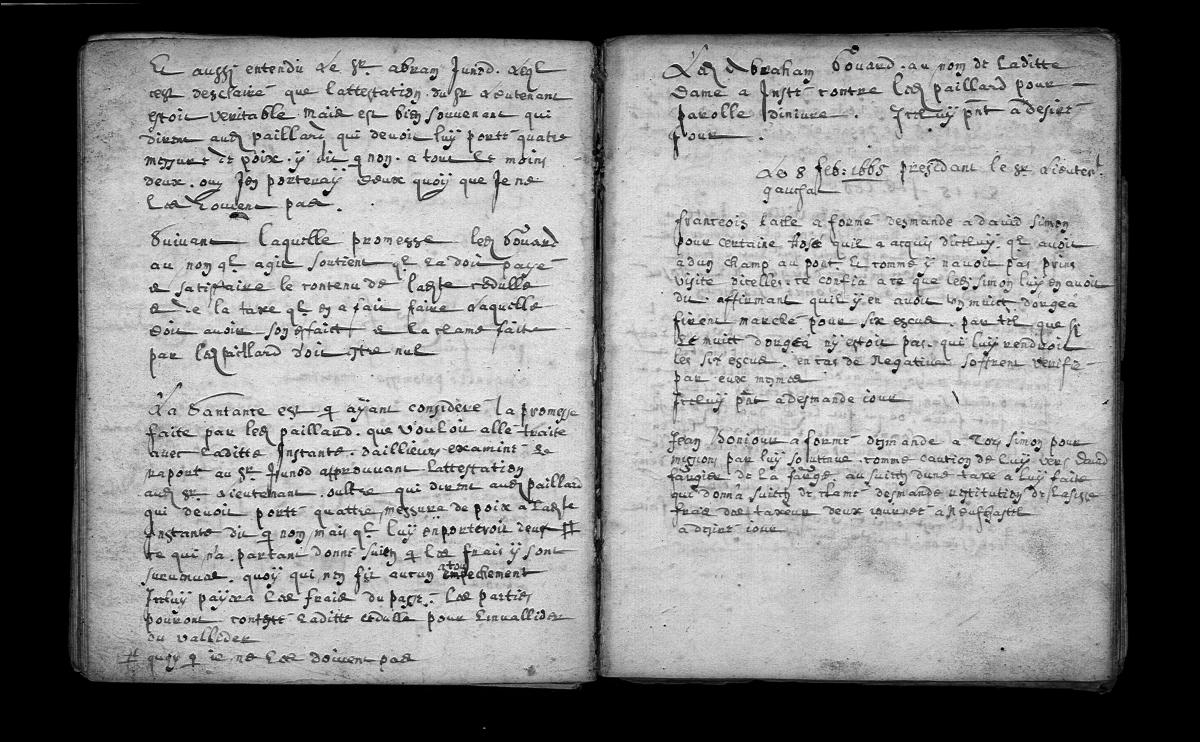 Et aussi entendu Le Sr. abram Junod. Leql
cest desclairé que Lattestation du Sr Lieutenant
estoit veritable mais est bien souvenant qui
dirent aud paillard qui devoit luy porté quatre
messure de poix. y dit q non. a tout le moins
deux. ouy Jen porteray deux quoy que Je ne
Les doivent pas.
Suivant laquelle promesse led bouard
au nom ql agit soutient ql La doit payé
& satisfaire le contenu de Ladte cedulle
& de la taxe ql en a fait faire Laquelle
doit avoir son effaict & la clame faite
par led paillard doit estre nul
La Santance est q ayant considéré la promesse
faite par led paillard. que vouloir allé traité
avec Laditte Instante. dailleurs examiné Le
raport au Sr Junod approuvant Lattestation
aud Sr. Lieutenant. oultre qui dirent aud paillard
qui devoit porté quattre messure de poix à Ladte
Instante dit q non, mais ql luy en porteroit deux #
ce qui n'a. partant donné suitte q les frais y sont
survenues. quoy qui nen fit aucun empechement
Iceluy payera Les frais du passé. Les parties
pouront contesté Laditte cedulle pour Linvallider
ou vallider
# quoy q ie ne Les doivent pas
Led Abraham bouard. au nom de Laditte
Dame a Insté contre led paillard pour
parolle dinjure. Iceluy pnt a desiré
jour
Le 8 feb: 1665 presidant le Sr Lieuten.t
gauchat
francois Lacle a formé desmande a david Simon
pour certaine chose quil a acquis diceluy ql avoit
a dun champ au port. Et comme y navoit pas prins
visite dicelles. ce confia a ce que led Simon luy en avoit
dit. affirmant quil y en avoit un muict dorgea
firent marché pour six escus. par tel que si
Le muict dorgea ny estoit pas. qui luy rendroit
les six escus. en cas de Negative soffrent verifé
par eux mesmes
Iceluy pnt a desmande iour
Jean bonjour a formé demande à Tors Simon pour
missions par luy soutinue. comme caution de luy vers David
fargier de la farge au suitth dune taxe a luy faite
qui donna suitth de clame desmande restitution de
frais des taxeur deux journés à Neufchastel
a desiré iour